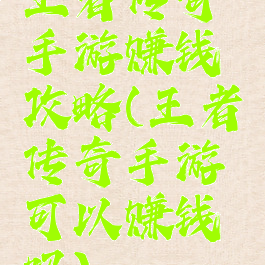 王者传奇
手游赚钱
攻略(王者
传奇手游
可以赚钱
吗)